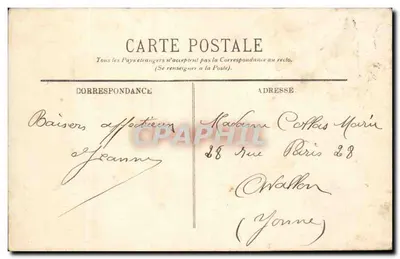 CARTE POSTALE
Tous les Pays étrangers n'acceptent pas la Correspondance au recto.
(Se renseigner à la Poste).
CORRESPONDANCE
ADRESSE
Baisers affectueux
Jeanne
Madame Collas Marie
28 rue Paris 28
Avallon
(Yonne)
CPAPHIL